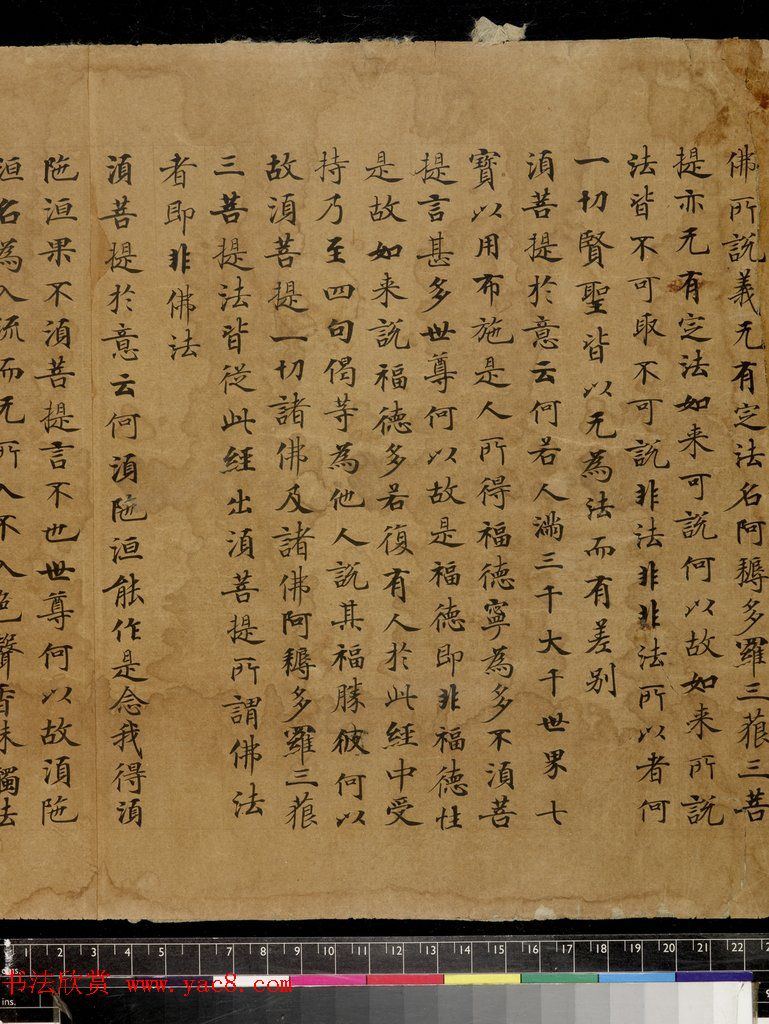 佛所說義无有定法名阿耨多羅三藐三菩
提亦无有定法如来可說何以故如来所說
法皆不可取不可說非法非非法所以者何
一切賢聖皆以无為法而有差别
湏菩提於意云何若人滿三千大千世界七
寶以用布施是人所得福德寧為多不湏菩
提言甚多世尊何以故是福德即非福德性
是故如来說福德多若復有人於此經中受
持乃至四句偈等為他人說其福勝彼何以
故湏菩提一切諸佛及諸佛阿耨多羅三藐
三菩提法皆從此經出湏菩提所謂佛法
者即非佛法
湏菩提於意云何湏陁洹能作是念我得湏
陁洹果不湏菩提言不也世尊何以故湏陁
洹名為入流而无所入不入色聲香味觸法
cms. 1 2 3 4 5 7 8 9 10 11 12 13 14 15 16 17 18 19 20 21 22
ins.
书法欣赏 www.yac8.com